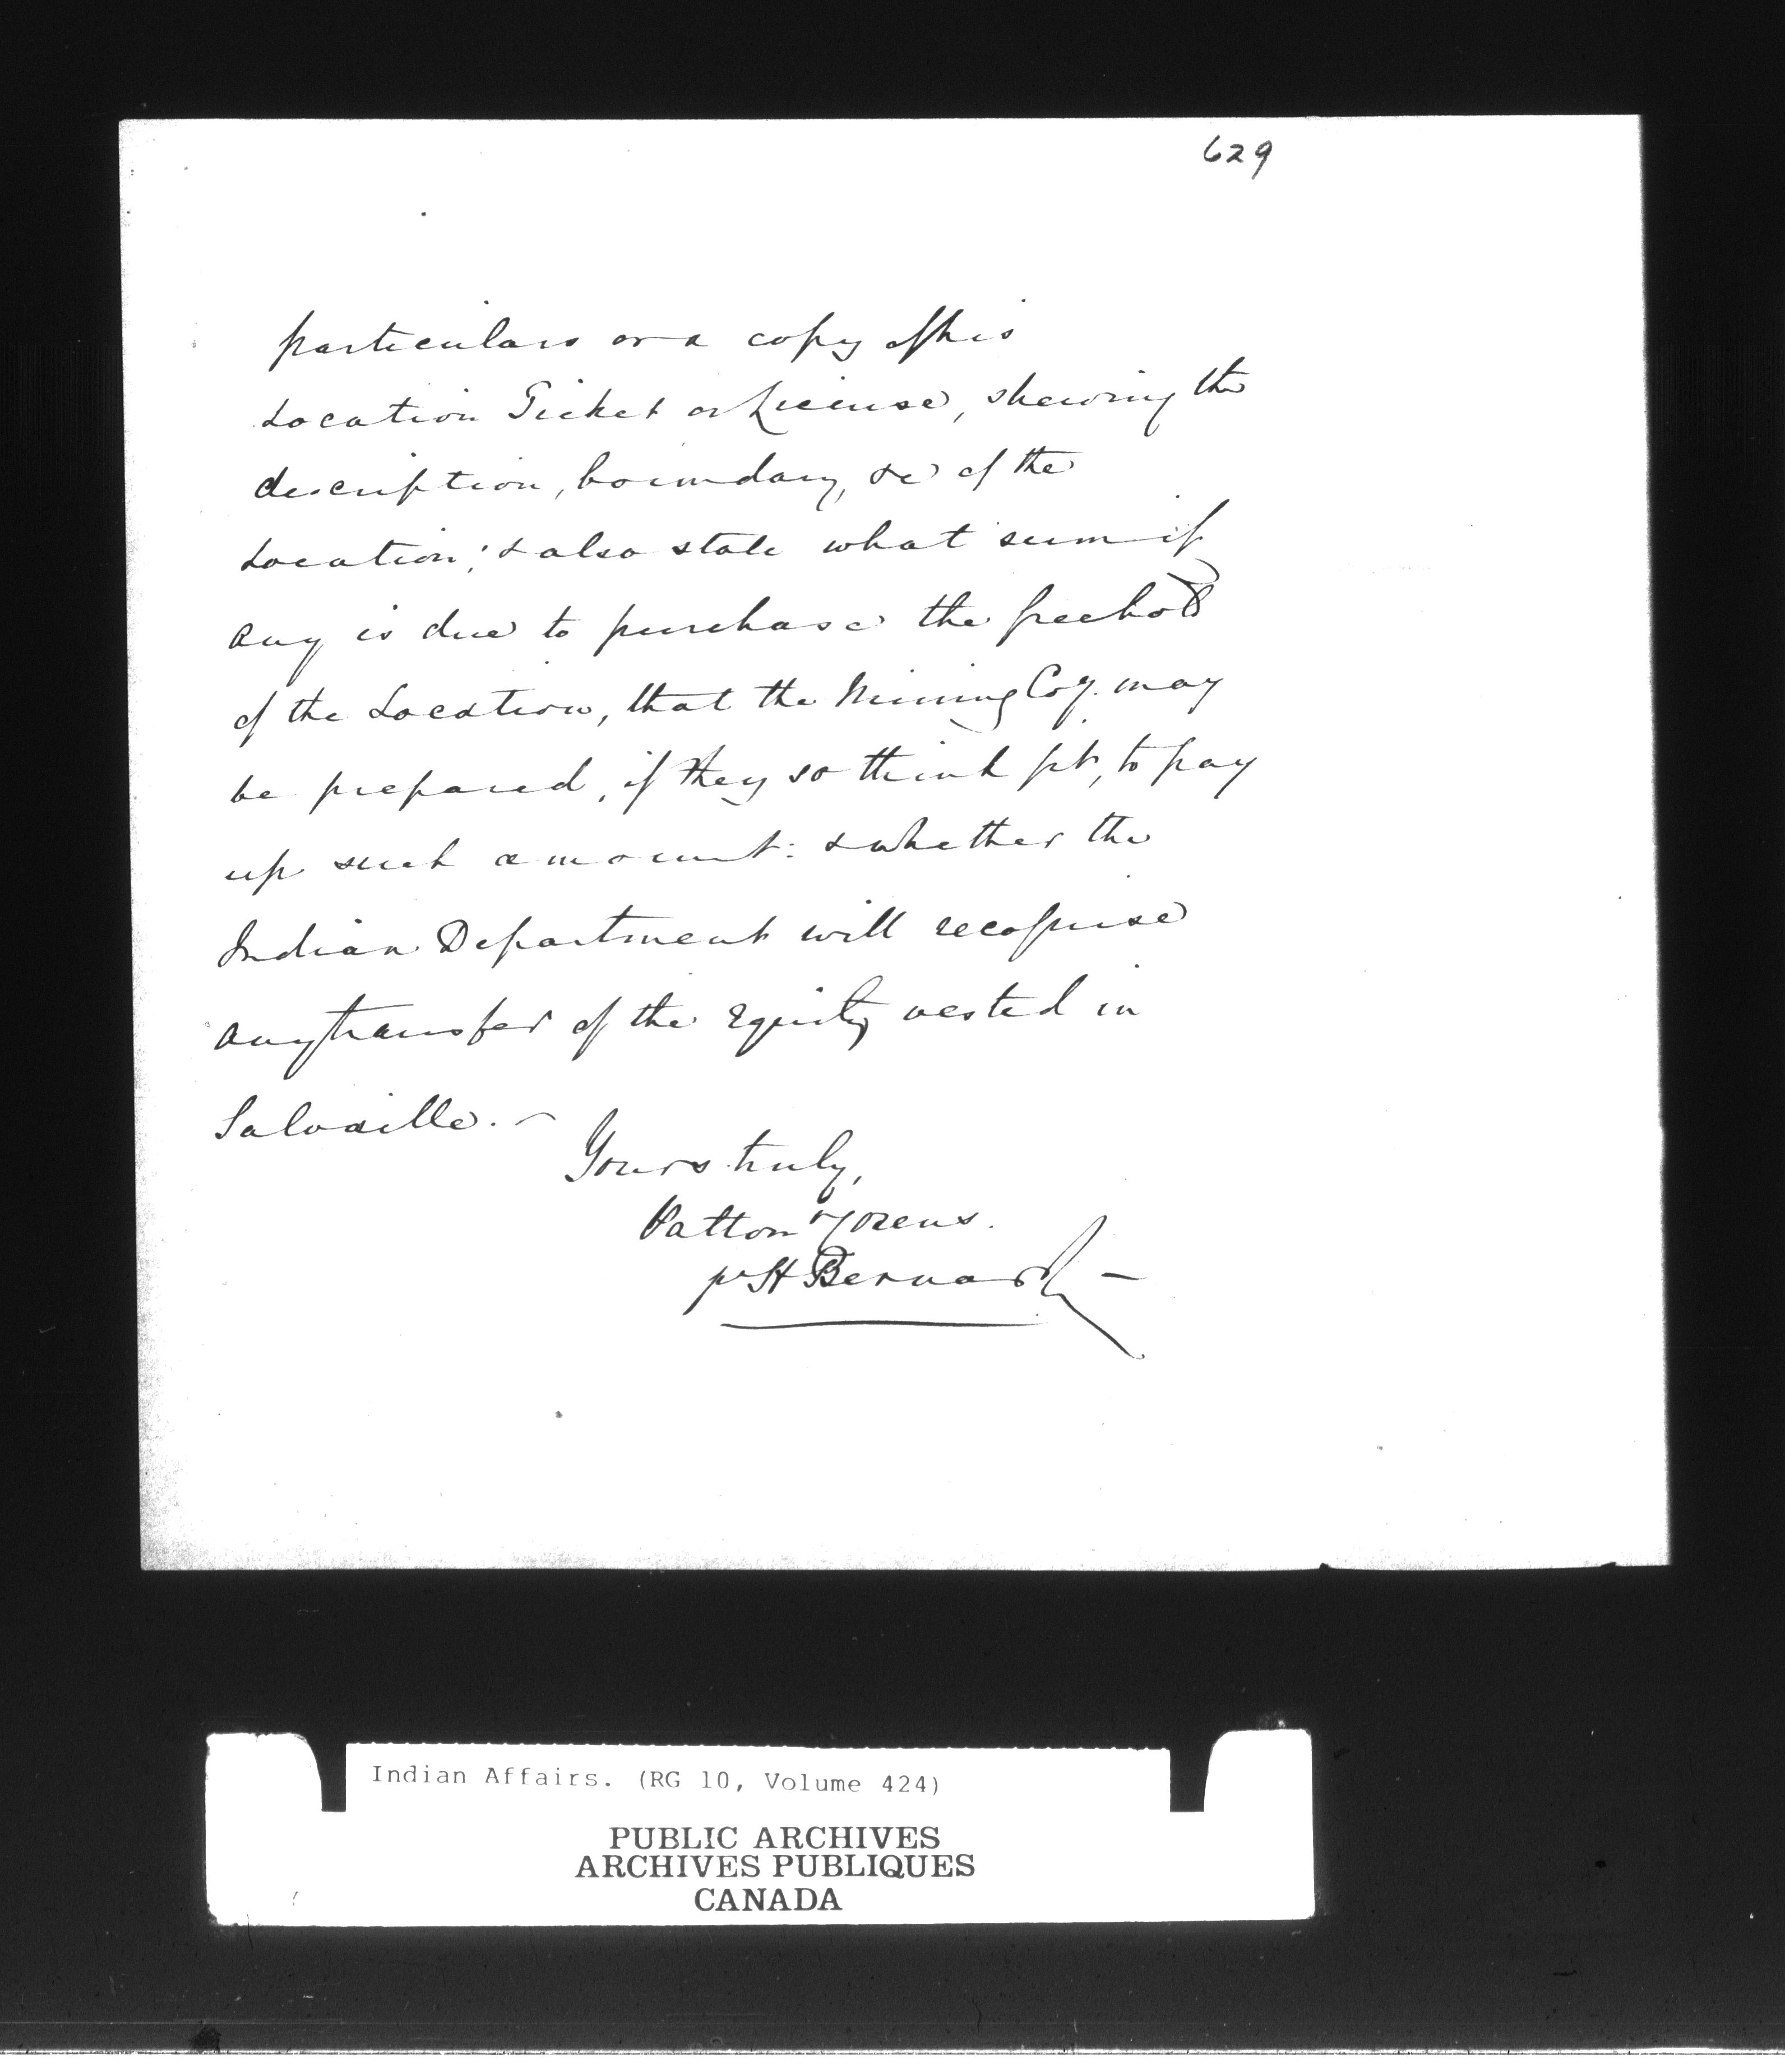 629
particulars or a copy of his
Location Ticket or License, shewing the
description, boundary, &c of the
Location; & also state what sum if
any is due to purchase the freehold
of the Location, that the Mining Coy. may
be prepared, if they so think fit, to pay
up such amount: & whether the
Indian Department will recognise
any transfer of the Equity vested in
Salvaille. —
Yours truly,
Patton &
pr H Bernard —
Indian Affairs. (RG 10, Volume 424)
PUBLIC ARCHIVES
ARCHIVES PUBLIQUES
CANADA